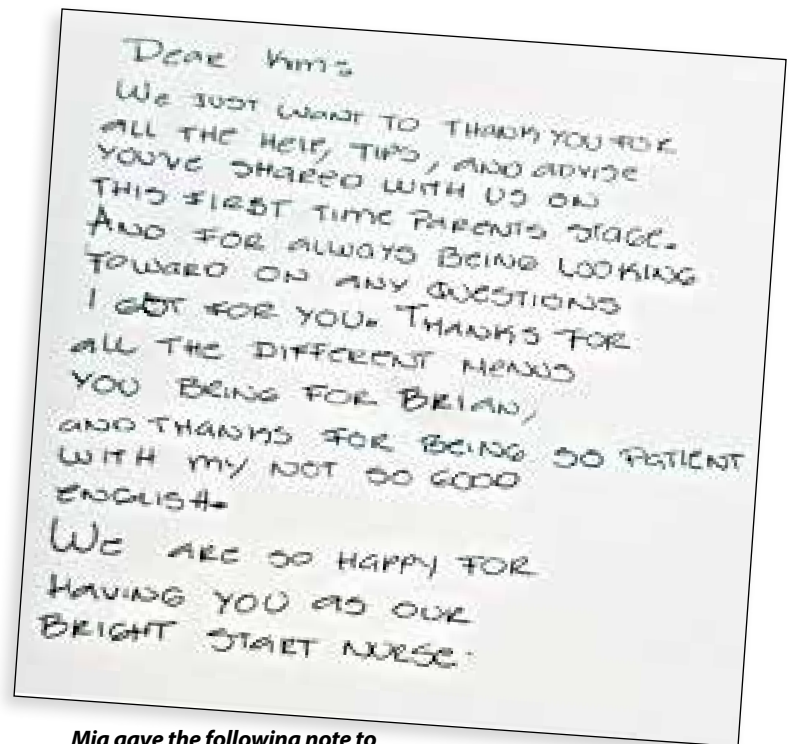 Dear Kim:
We just want to thank you for
all the help, tips, and advise
you've shared with us on
this first time parents stage.
And for always being looking
toward on any questions
I got for you. Thanks for
all the different menus
you bring for Brian,
and thanks for being so patient
with my not so good
english.
We are so happy for
having you as our
Bright Start Nurse.
Mia gave the following note to